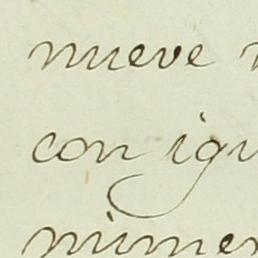 nueve
con igu
númer